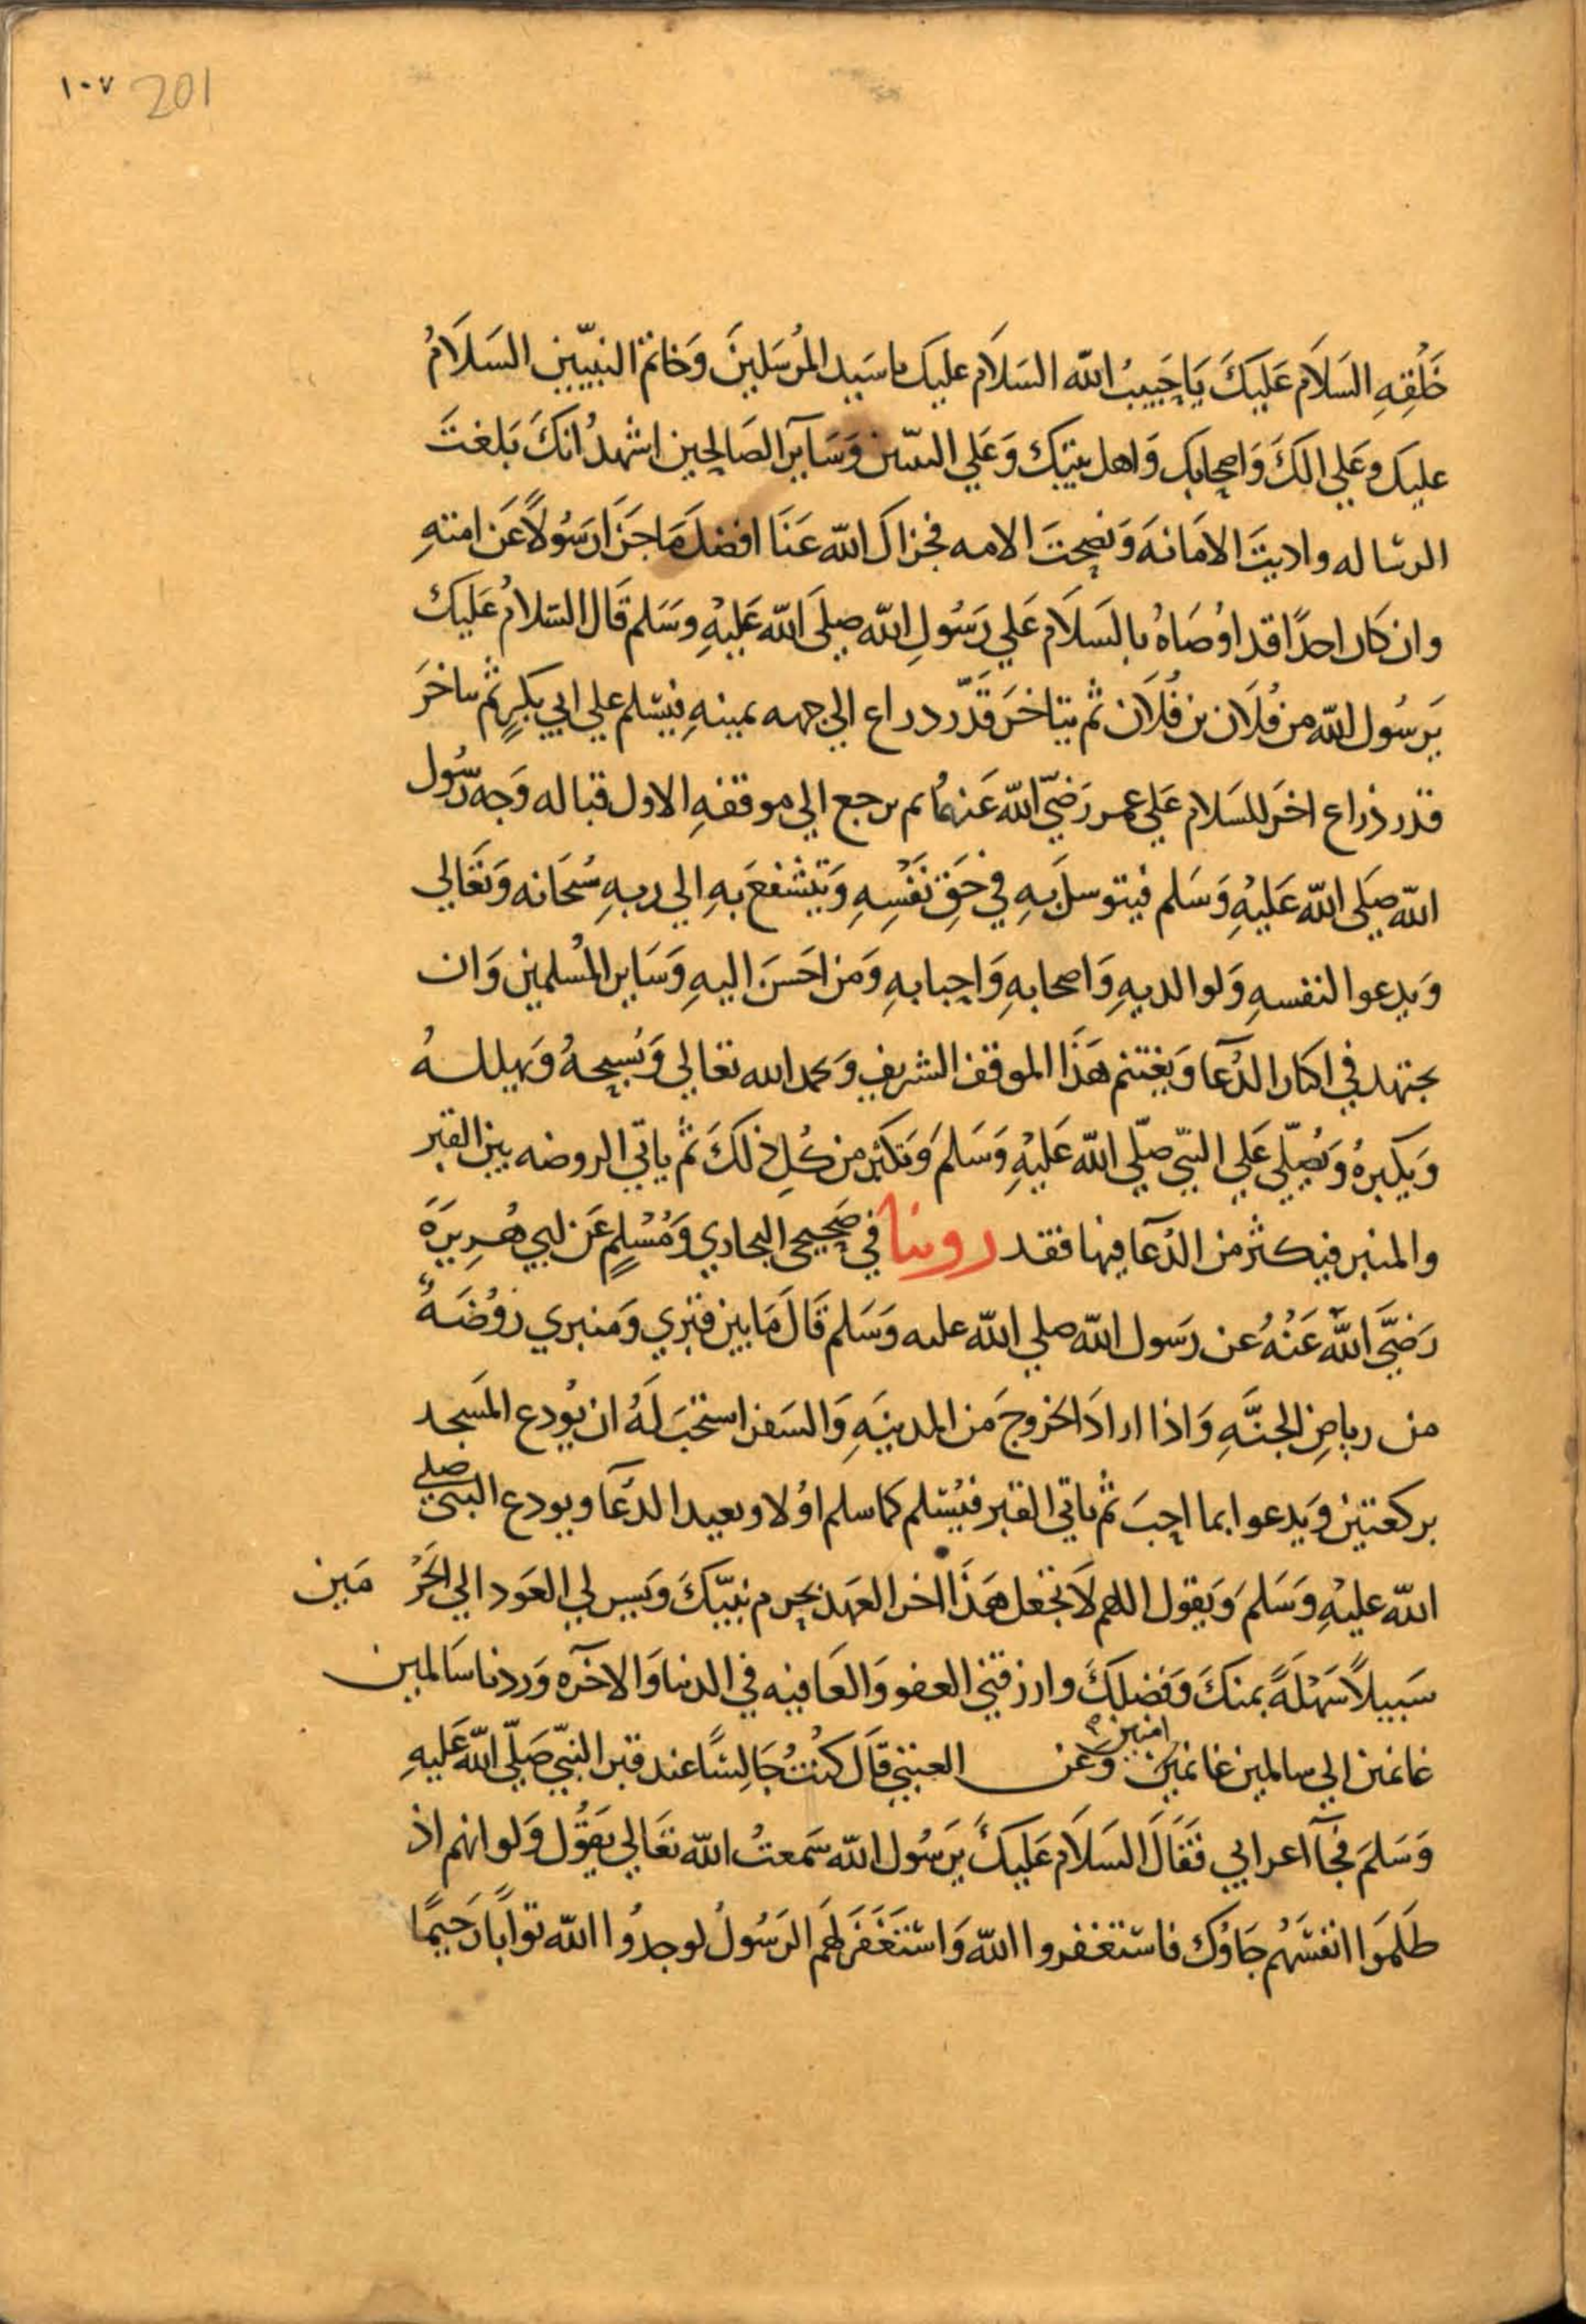 ١٠٧ 201
خَلْقِهِ السَلَام عَلَيكَ يَا حَبِيبُ الله السَلَام عليك يا سَيد المُرسَلينَ وَخاتم النبيّين السَلَامُ
عليك وعَلي الكَ وَاصحابك وَاهل بيتِك وَعَلي النبيين وَسَاير الصَالِحين اشهدُ انكَ بَلغتَ
الرساله واديتَ الامَانهَ وَنصحتَ الامه فجزاك الله عَنَا افضلَ مَا جَزَا رَسُولاً عَن امتهِ
وان كان احدًا قد اوْصَاهُ بالسَلَام عَلي رَسُولِ الله صلَى الله عَليْهِ وسَلم قَال السَلامُ عَليك
يَرسُول الله من فُلَان بن فُلَان ثم يتاخرَ قَدّر دراع الي جهه يمينهِ فيسَلم علي ابي بكرٍ ثم يتاخرَ
قدر ذراع اخرَ للسَلام عَلي عمر رَضيَ الله عَنهُما ثم يرجع الي موقفهِ الاول قباله وَجه رَسُول
الله صَلى الله عَليْهِ وَسَلم فيتوسل بهِ في حَقِ نَفْسِهِ وَيَتشفعَ بهِ الي ربهِ سُبحَانه وَتعَالي
وَيدعوا لنفسهِ وَلوالديهِ وَاصحابهِ وَاحبابهِ وَمَن احَسَن اليهِ وَسَاير المُسلمين وَان
يجتهد في اكثار الدُعَا وَيغتنم هَذَا الموقف الشريف وَيحمد الله تعالي وَيُسبحهُ وَيهللهُ
وَيكبرهُ وَيُصلّي عَلي النبيّ صلّي الله عَليْهِ وَسَلمَ وَيَكثر من كُلِ ذلكَ ثم ياتي الروضه بين القبر
والمنبر فيكثر من الدُعَا فيها فقد روينا في صَحيحي البخاري وَمُسْلمٍ عَن ابي هُريرَةَ
رَضيَ الله عَنْهُ عن رَسول الله صلي الله عليه وَسَلم قَالَ مَا بين قبري وَمنبري رَوْضَةٌ
من رياضِ الجنَّهِ وَاذا ارادَ الخروجَ مَن المدينَهِ وَالسَفر استحَبَ لَهُ ان يُودع المَسجد
بركعتين وَيدعوا بما احبَ ثم ياتي القبر فيُسَلم كما سلم اوُلا ويعيد الدُعَا ويودع النبي صلي
الله عليْهِ وَسَلمَ وَيقول اللهم لَا تجعل هَذَا اخر العَهد بحرم نبيّكَ وَيَسر لي العَود الي الحَرَ مَين
سَبيلاً سَهْلَةً بمنكَ وَفَضلكَ وارزقني العفو وَالعَافيه في الدنيا وَالاخرَه وَردنا سَالمين
غانمين الي سالمين غانمين امنين وَعَن العتبي قَال كنتُ جَالِسًا عند قبر النبيّ صَلّي الله عَليهِ
وَسَلمَ فجَا اعرابي فَقَالَ السَلَام عَليكَ يَرسُول الله سَمعتُ الله تعَالي يَقُول وَلو انهم اذ
ظَلمَوا انفسَهُم جَاوُك فاستغفروا الله وَاستَغفَرَ لهَم الرَسُولُ لوجدُوا الله توابًا رَحيمًا